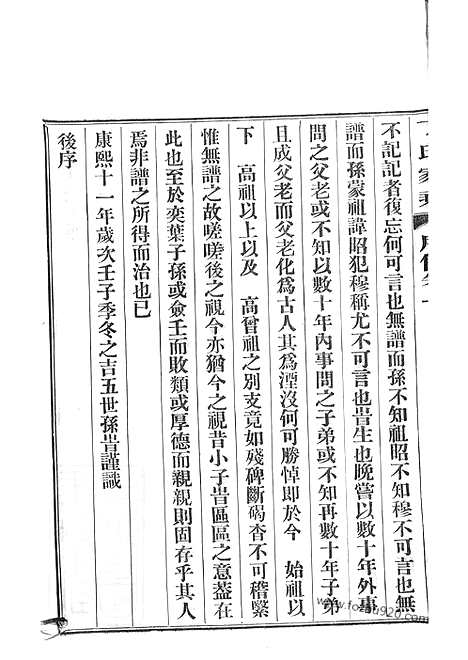 氏家乘
不記記者復忘何可言也無譜而孫不知祖昭不知穆不可言也無
譜而孫蒙祖諱昭犯穆稱尤不可言也昔生也晚嘗以數十年外事
問之父老或不知以數十年內事問之子弟或不知再數十年子弟
且成父老而父老化為古人其為湮沒何可勝悼即於今　始祖以
下　高祖以上以及　高曾祖之別支竟如殘碑斷碣杳不可稽繄
惟無譜之故嗟嗟後之視今亦猶今之視昔小子昔區區之意蓋在
此也至於奕葉子孫或僉壬而敗類或厚德而親親則固存乎其人
焉非譜之所得而治也已
康熙十一年歲次壬子季冬之吉五世孫昔謹識
後序